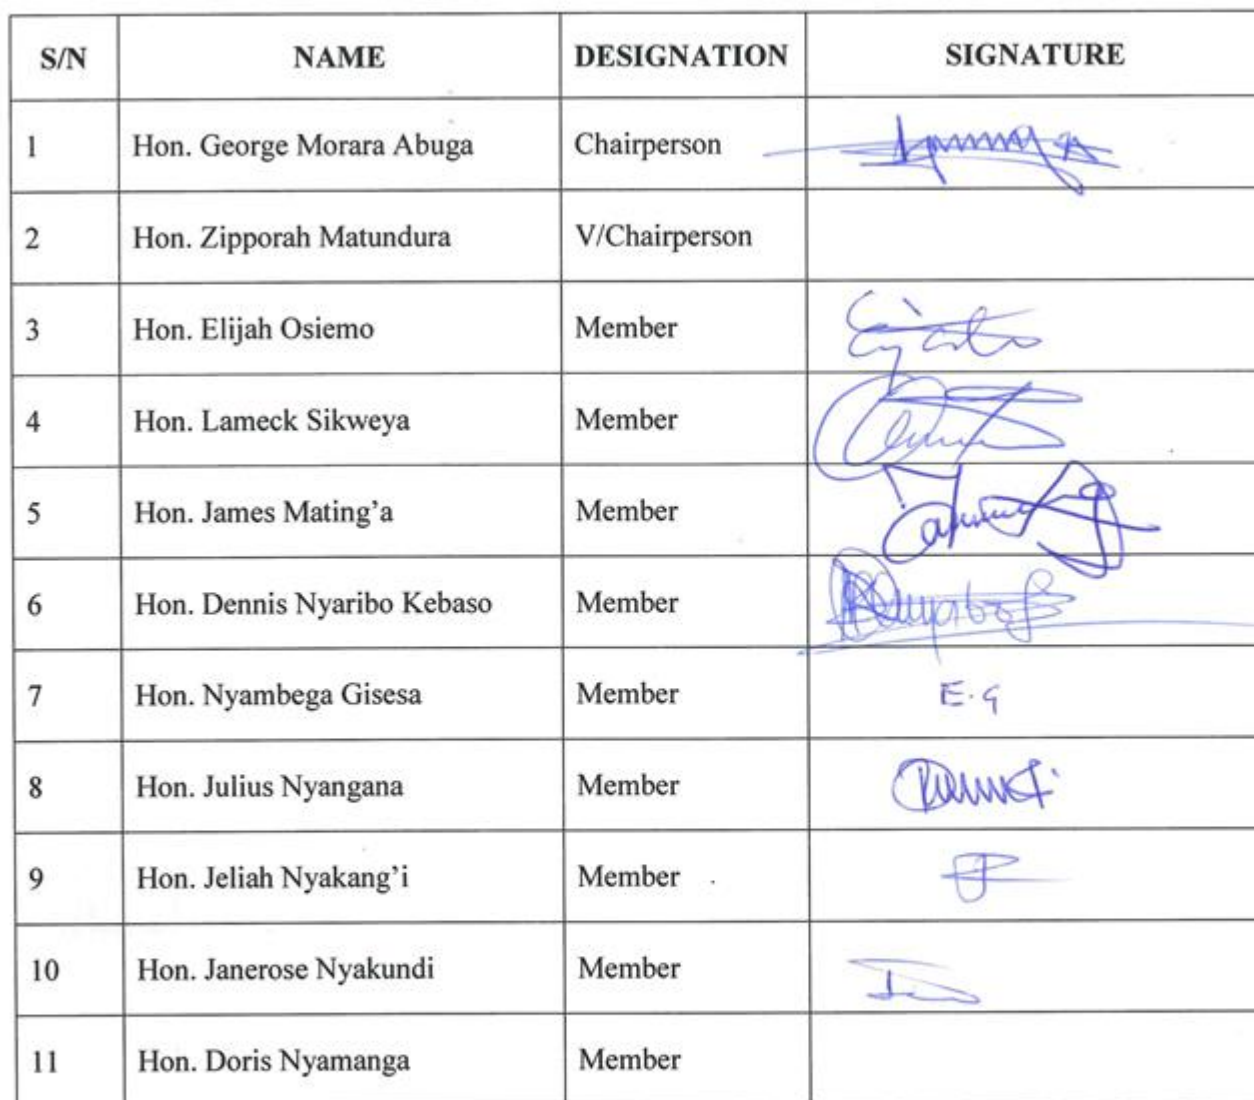 S/N NAME DESIGNATION SIGNATURE
1 Hon. George Morara Abuga Chairperson
2 Hon. Zipporah Matundura V/Chairperson
3 Hon. Elijah Osiemo Member
4 Hon. Lameck Sikweya Member
5 Hon. James Mating’a Member
6 Hon. Dennis Nyaribo Kebaso Member
7 Hon. Nyambega Gisesa Member E.G
8 Hon. Julius Nyangana Member
9 Hon. Jeliah Nyakang’i Member
10 Hon. Janerose Nyakundi Member
11 Hon. Doris Nyamanga Member